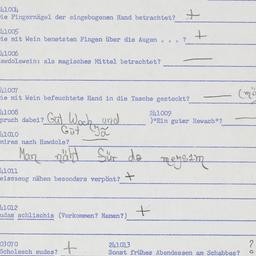 41004
ie Fingernägel der eingebogenen Hand betrachtet? +
41005
ie mit Wein benetzten Finger über die Augen . . . ? +
41006
awdolewein: als magisches Mittel betrachtet? —
41007
ie mit Wein befeuchtete Hand in die Tasche gesteckt? —
41008 241009
pruch dabei? Gut Woch und )"Ein guter Hewarb"? —
Gut Ja
41010
miras nach Hawdole?
Man näht Für de
41011
eisszeug nähen besonders verpönt? +
41012
udas schlischis (Vorkommen? Namen?) +
03070 241013
Scholesch sudes? + Sonst frühes Abendessen am Schabbes? ?